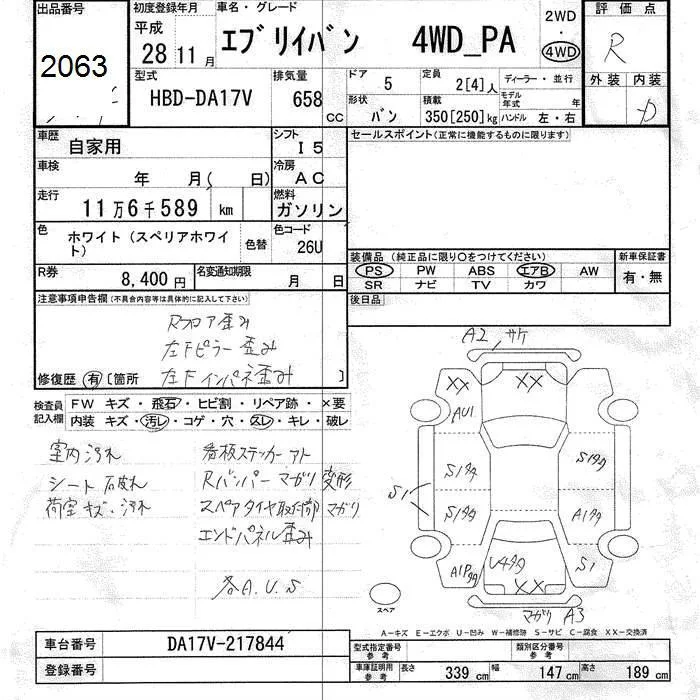 出品番号
2063
初度登録年月
平成
28 11 月
車名・グレード
エブリイバン 4WD_PA
2WD
・
4WD
評価点
R
外装 内装
D
型式
HBD-DA17V
排気量
658 CC
ドア
5
定員
2[4]人
ディーラー・並行
形状
バン
積載
350[250]kg
モデル年式 年
ハンドル 左・右
車歴
自家用
シフト
I 5
車検
年 月( 日)
冷房
AC
走行
11万6千589 km
燃料
ガソリン
色
ホワイト(スペリアホワイト)
色替
色コード
26U
R券
8,400 円
名変通知期限
月 日
セールスポイント(正常に機能するものに限ります)
装備品(純正品に限り○をつけてください)
PS PW ABS エアB AW
SR ナビ TV カワ
新車保証書
有・無
後日品
注意事項申告欄(不具合内容等は具体的に記入して下さい)
Rフロア歪み
左Fピラー歪み
修復歴 有 [箇所 左Fインパネ歪み ]
検査員記入欄
FW キズ・飛石・ヒビ割・リペア跡・×要
内装 キズ・汚レ・コゲ・穴・スレ・キレ・破レ
室内汚れ
シート破れ
荷室キズ・汚れ
看板ステッカーアト
Rバンパーマガリ変形
スペアタイヤ取付部マガリ
エンドパネル歪み
各A.U.S
A2 サケ
XX
XX
AU1
S1タタ
S1タタ
S1
S1タタ
A1タタ
A1Pタタ
U4タタ
S1
XX
マガリ A3
スペア
A-キズ E-エクボ U-凹み W-補修跡 S-サビ C-腐食 XX-交換済
車台番号
DA17V-217844
登録番号
型式指定番号
参考
類別区分番号
参考
車庫証明用
参考
長さ 339 cm 幅 147 cm 高さ 189 cm